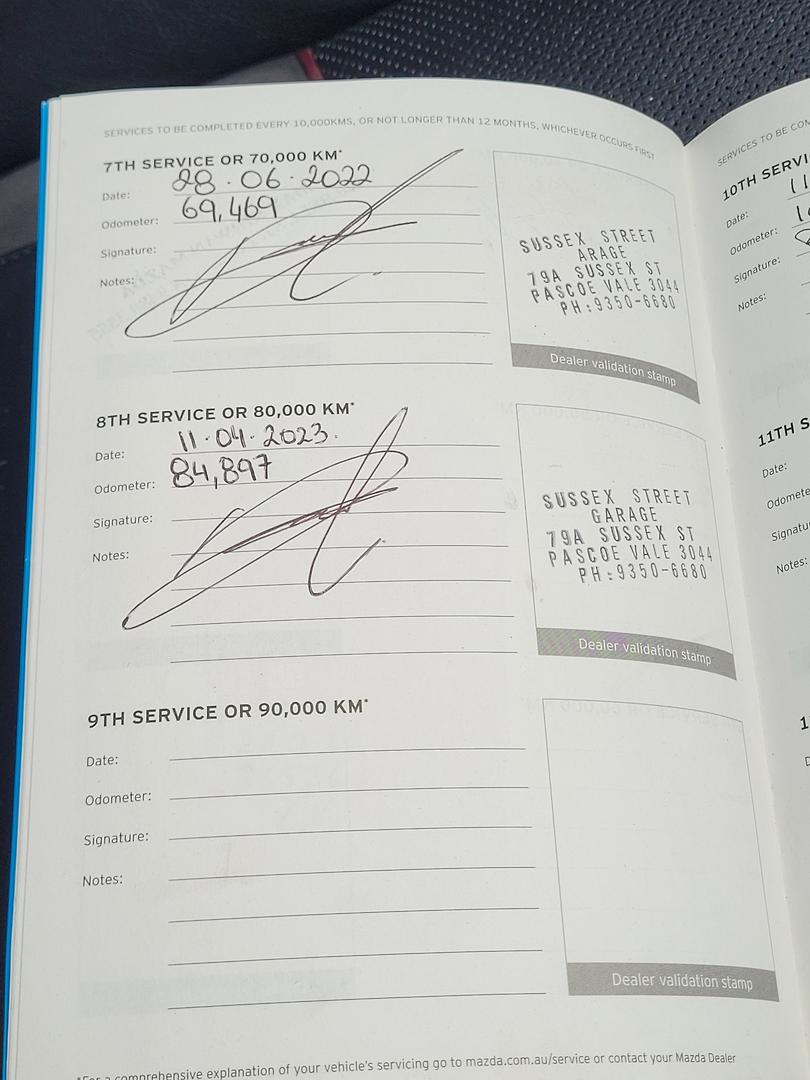 SERVICES TO BE COMPLETED EVERY 10,000KMS, OR NOT LONGER THAN 12 MONTHS, WHICHEVER OCCURS FIRST
7TH SERVICE OR 70,000 KM*
Date: 28.06.2022
Odometer: 69,469
Signature:
Notes:
SUSSEX STREET
ARAGE
79A SUSSEX ST
PASCOE VALE 3044
PH:9350-6680
Dealer validation stamp
8TH SERVICE OR 80,000 KM*
Date: 11.04.2023.
Odometer: 84,897
Signature:
Notes:
SUSSEX STREET
GARAGE
79A SUSSEX ST
PASCOE VALE 3044
PH:9350-6680
Dealer validation stamp
9TH SERVICE OR 90,000 KM*
Date:
Odometer:
Signature:
Notes:
Dealer validation stamp
*For a comprehensive explanation of your vehicle's servicing go to mazda.com.au/service or contact your Mazda Dealer
SERVICES TO BE COM
10TH SERVI
Date:
Odometer:
Signature:
Notes:
11TH S
Date:
Odomete
Signatu
Notes: